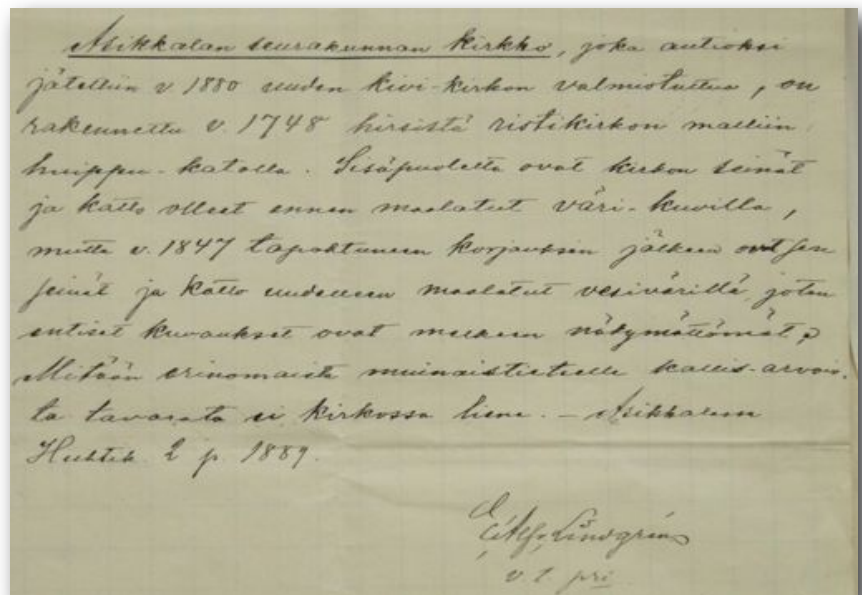 Asikkalan seurakunnan kirkko, joka autioksi
jätettiin v. 1880 uuden kivi-kirkon valmistuttua, on
rakennettu v. 1748 hirsistä ristikirkon malliin
huippu-katolla. Sisäpuolelta ovat kirkon seinät
ja katto olleet ennen maalatut väri-kuvilla,
mutta v. 1847 tapahtuneen korjauksen jälkeen ovat sen
seinät ja katto uudelleen maalatut vesivärillä, joten
entiset kuvaukset ovat melkein näkymättömät.
Mitään erinomaista muinaistieteelle kallis-arvois-
ta tavarata ei kirkossa liene. – Asikkalassa
Huhtik. 2 p. 1889.
Alf. Lindgrén
v. t. pri